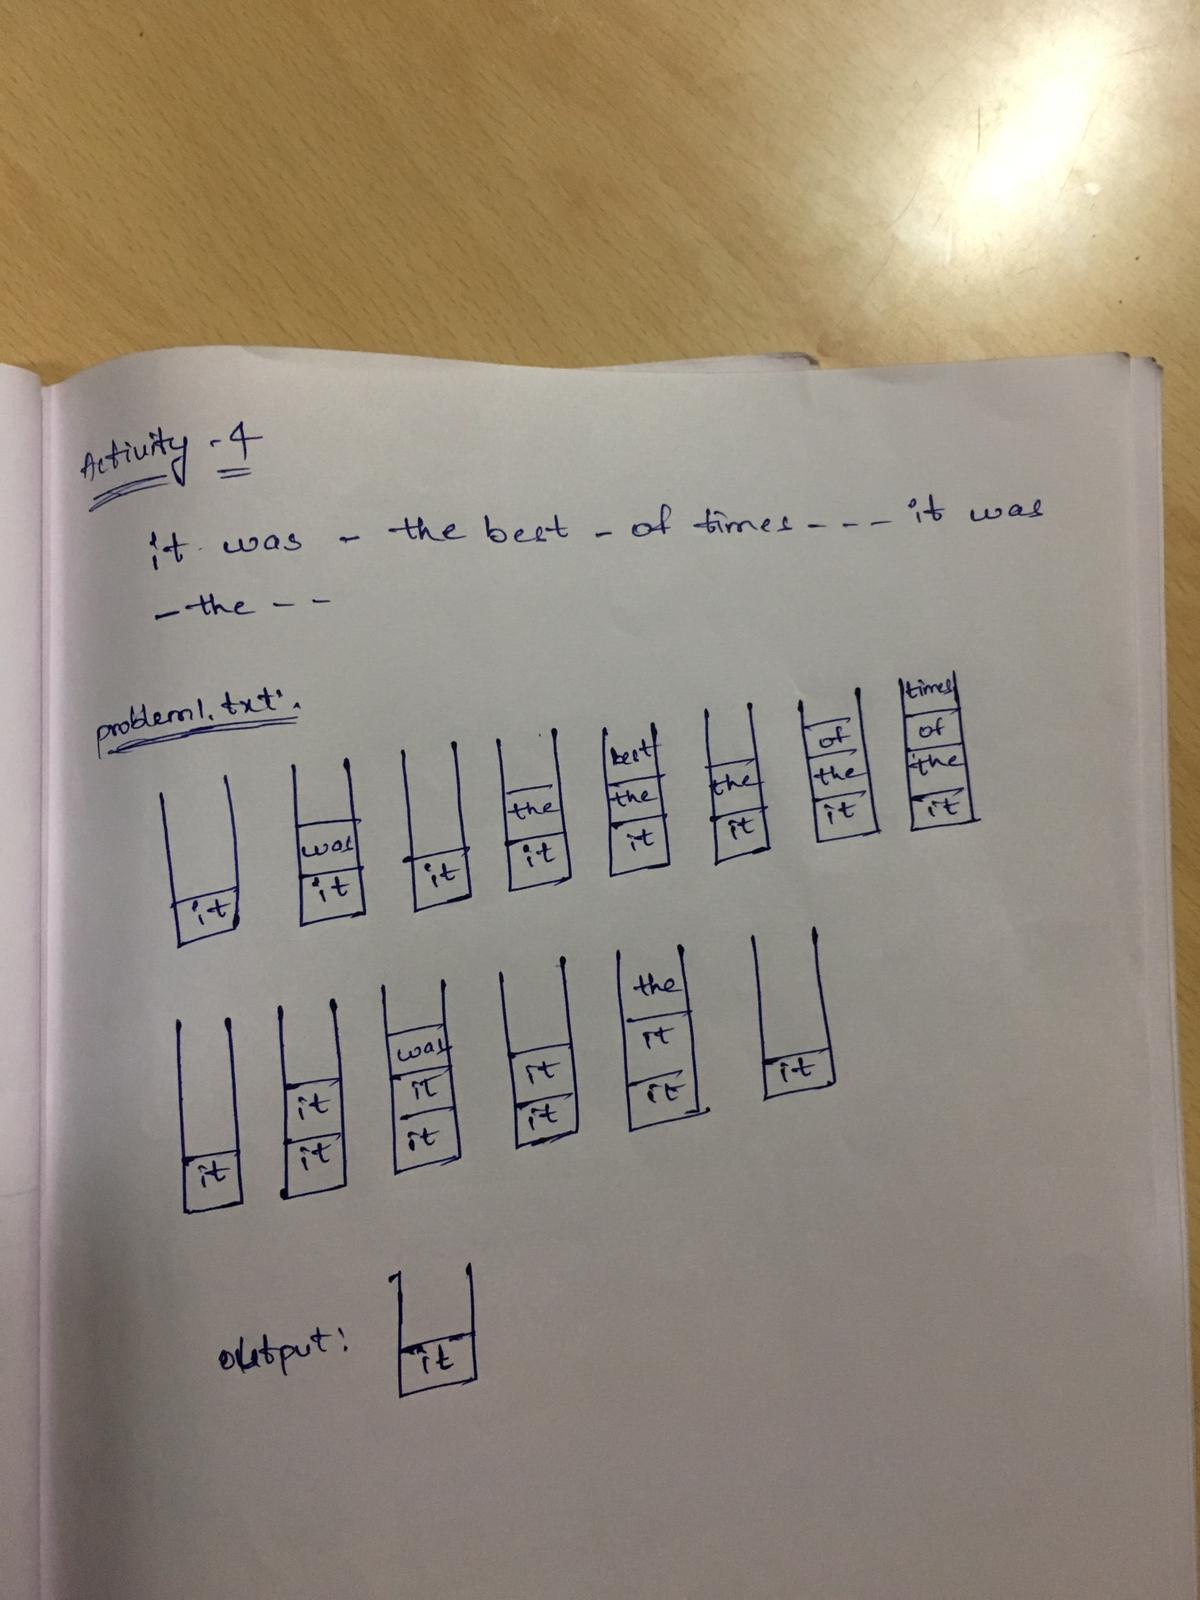 Activity - 4
it was - the best - of times - - - it was
- the - -
problem1.txt:
it
was
it
it
the
it
best
the
it
the
it
of
the
it
times
of
the
it
it
it
it
was
it
it
it
it
the
it
it
it
output:
it